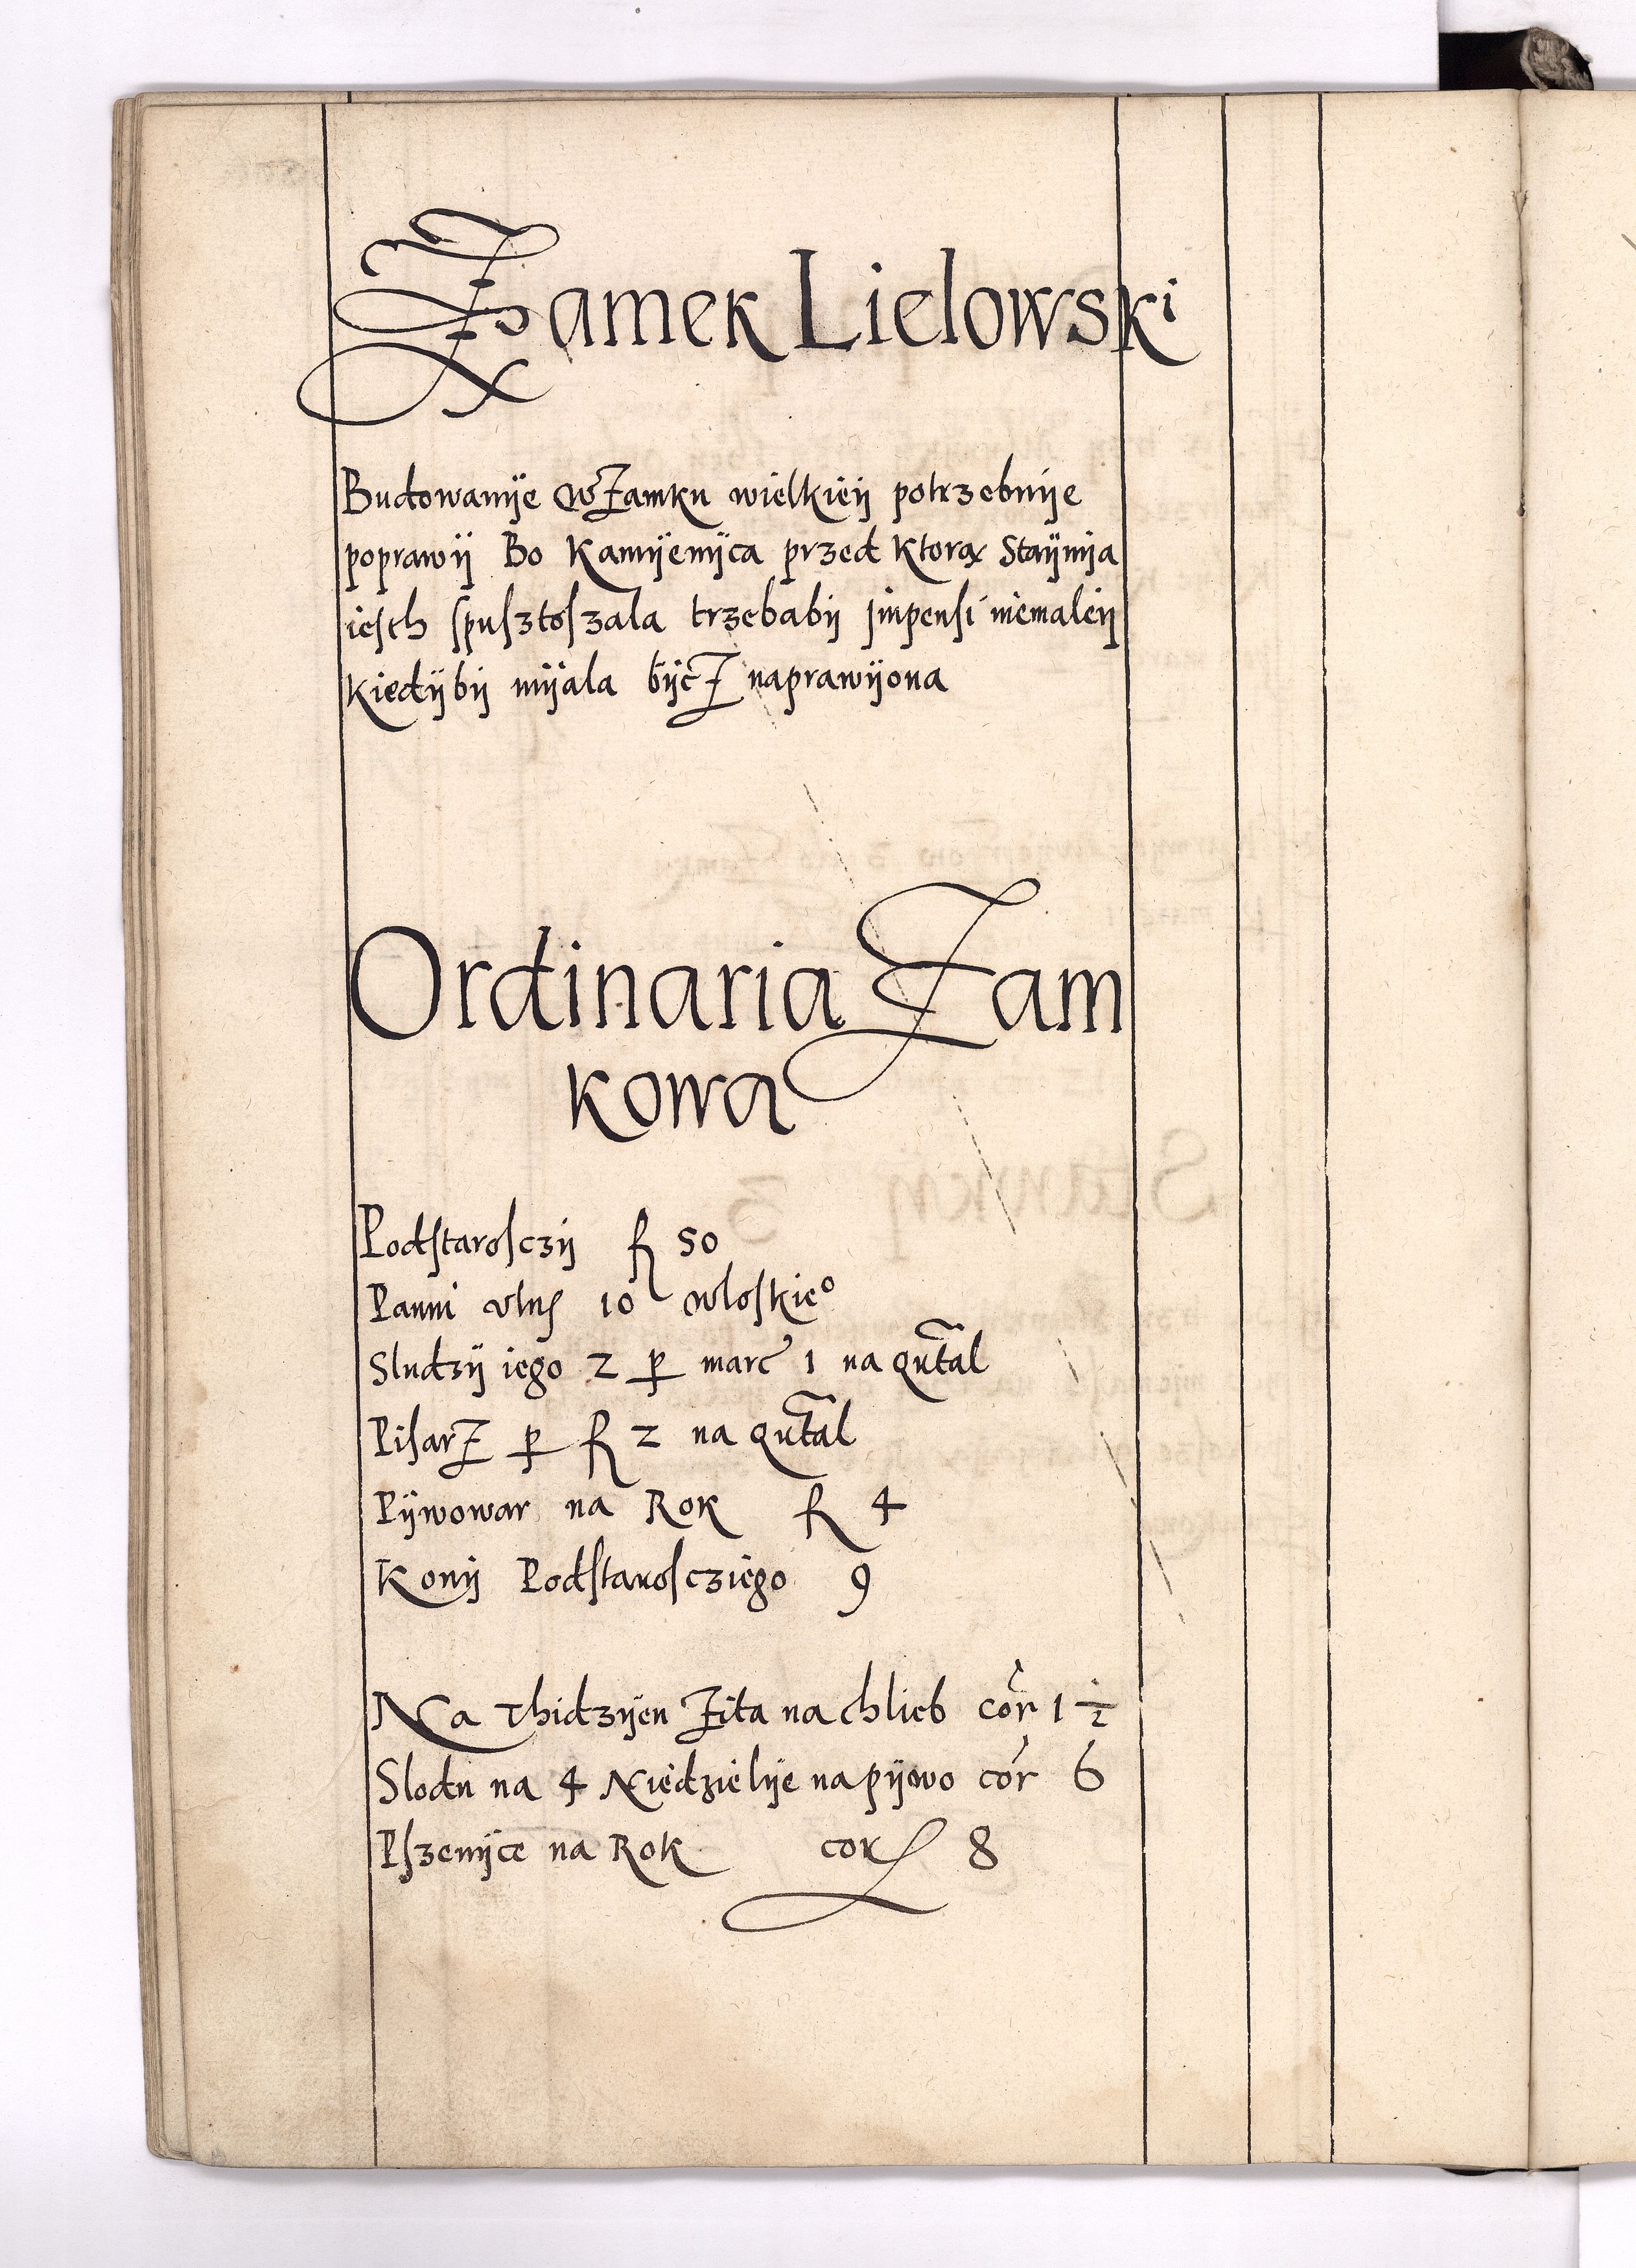 Zamek Lielowski
Budowanÿe w Zamku wielkieÿ potrzebuÿe
poprawÿ Bo Kamÿenÿca przed ktorą Staÿnia
iesth spusztoszala trzebabÿ jmpensi niemaleÿ
kiedÿbÿ mÿala bÿcz naprawÿona
Ordinaria Zam
kowa
Podstarosczÿ fl 50
Panni vlnę 10 wloskieº
Sludzÿ iego 2 p marc 1 na qūtal
Pisarz p fl 2 na qūtal
Pÿwowar na Rok fl 4
Konÿ Podstarosczięgo 9
Na Thidzÿen Zita na chlieb cor 1 ½
Slodu na 4 Niedzielÿe na pÿwo cor 6
Pszenÿce na Rok cor 8